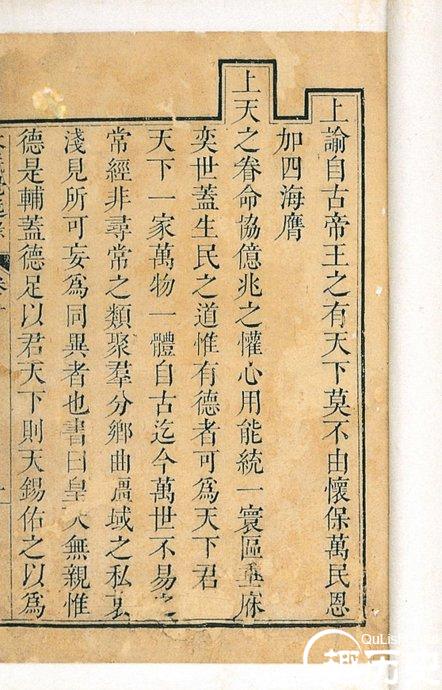 上諭自古帝王之有天下莫不由懷保萬民恩
加四海膺
上天之眷命協億兆之懽心用能統一寰區垂庥
奕世蓋生民之道惟有德者可為天下君
天下一家萬物一體自古迄今萬世不易之
常經非尋常之類聚羣分鄉曲疆域之私衷
淺見所可妄為同異者也書曰皇天無親惟
德是輔蓋德足以君天下則天錫佑之以為
QuLis